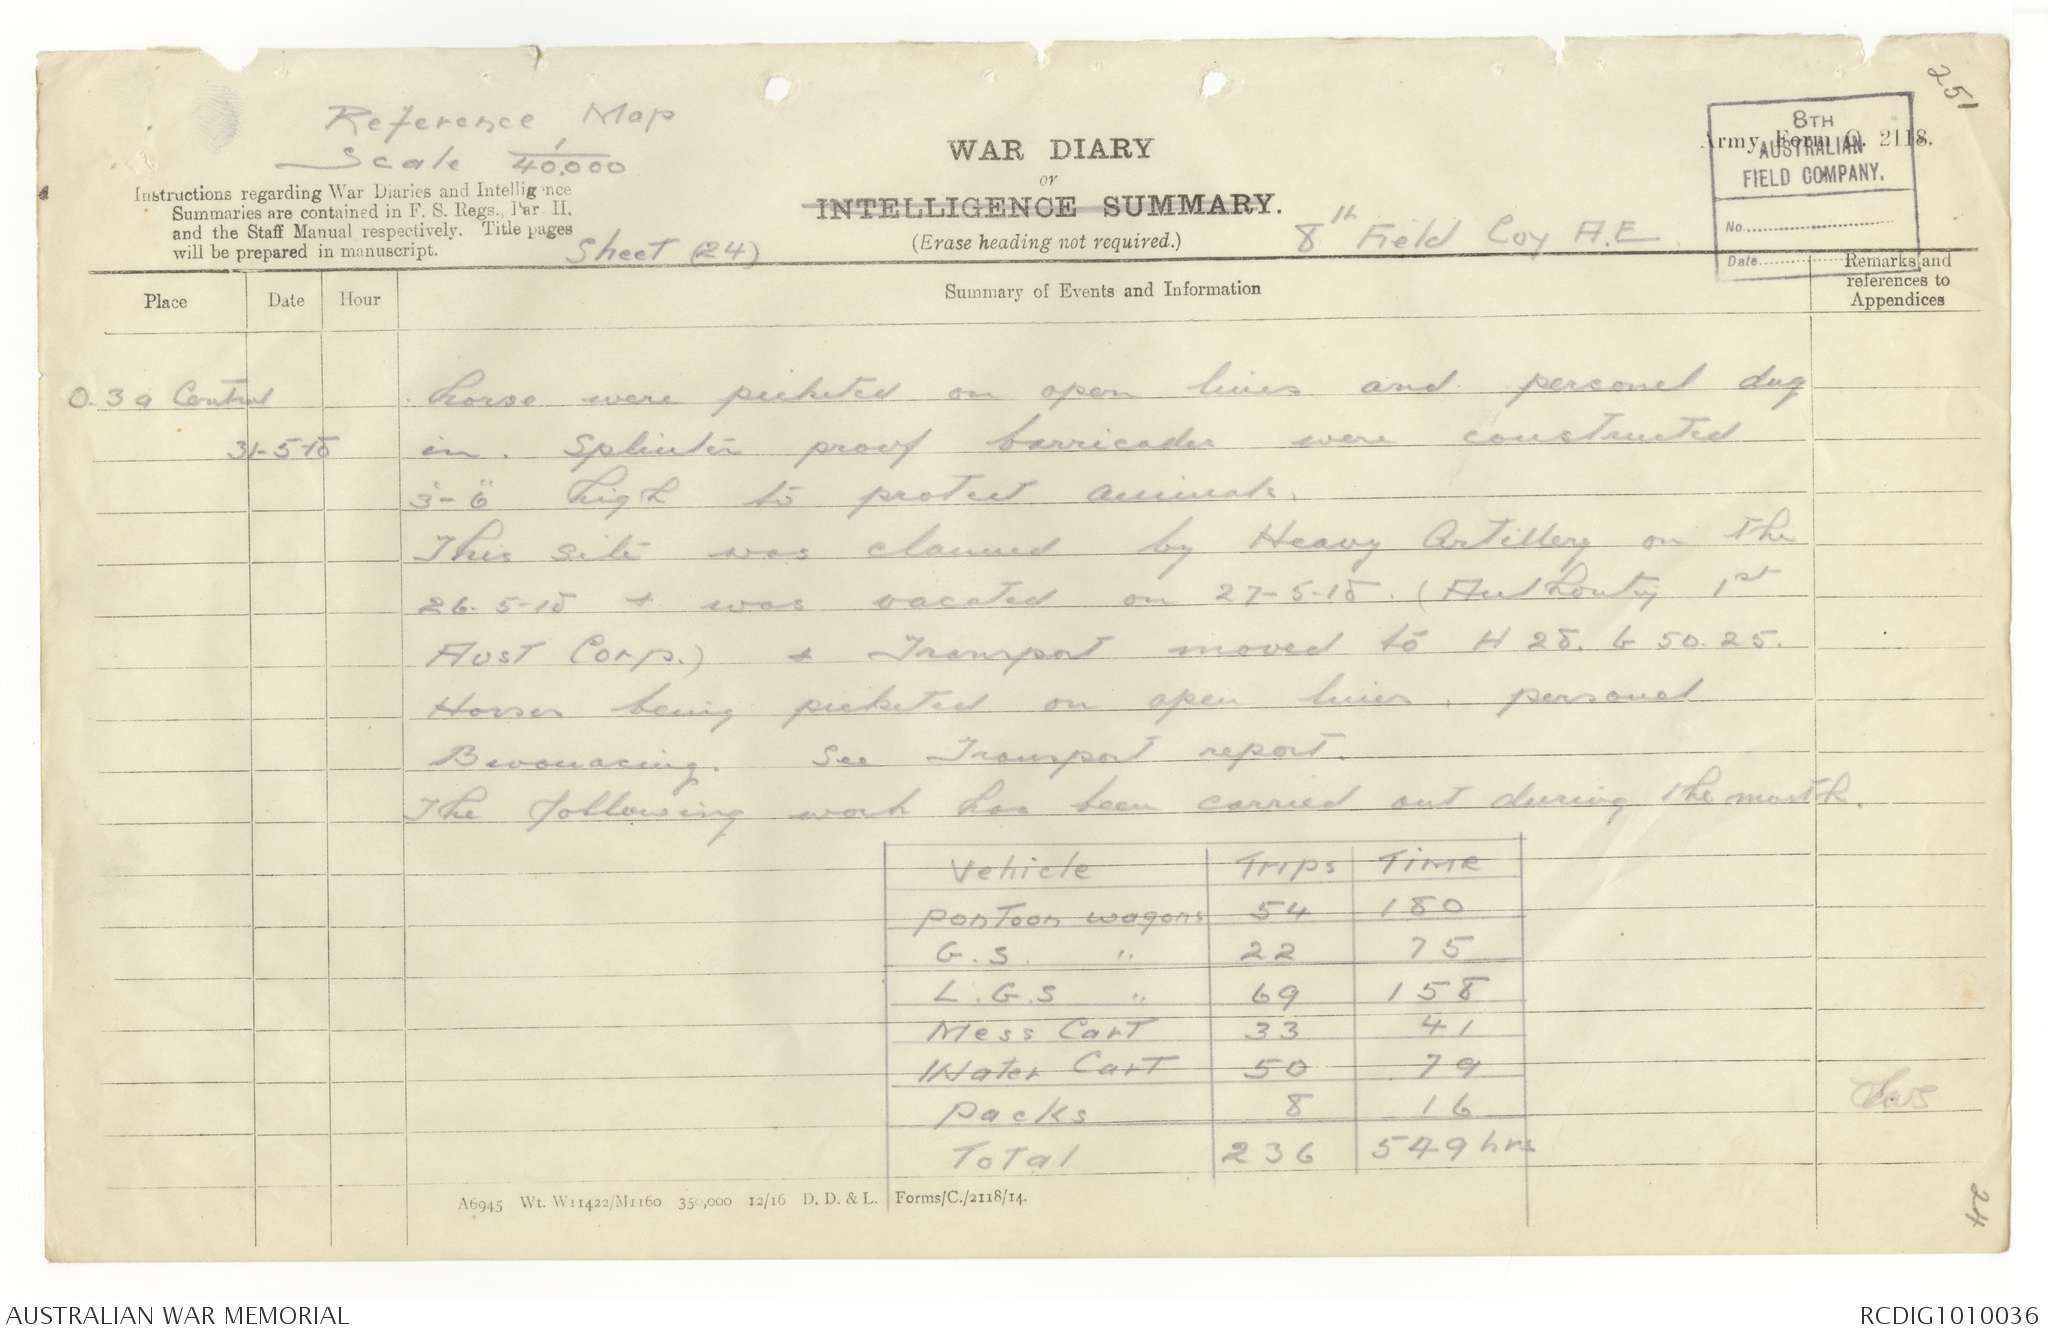 251
Reference Map
Scale 1/40,000
WAR DIARY
or
INTELLIGENCE SUMMARY.
(Erase heading not required.)
Army Form C. 2118.
8TH
AUSTRALIAN
FIELD COMPANY.
No.
Date
Instructions regarding War Diaries and Intelligence
Summaries are contained in F. S. Regs., Part II.
and the Staff Manual respectively. Title pages
will be prepared in manuscript.
Sheet (24)
8th Field Coy A.E.
Place Date Hour Summary of Events and Information Remarks and references to Appendices
O.3a Central horse were picketed on open lines and personel dug
31-5-18 in. Splinter proof barricades were constructed
3'-6" high to protect animals.
This site was claimed by Heavy Artillery on the
26-5-18 + was vacated on 27-5-18. (Authority 1st
Aust Corp.) + Transport moved to H 28. b 50.25.
Horses being picketed on open lines, personel
Bivouacing. See Transport report.
The following work has been carried out during the month.
Vehicle Trips Time
Pontoon wagons 54 180
G.S. " 22 75
L.G.S " 69 158
Mess Cart 33 41
Water Cart 50 79
Packs 8 16
Total 236 549 hrs
24
A6945 Wt. W11422/M1160 350,000 12/16 D. D. & L. Forms/C./2118/14.
AUSTRALIAN WAR MEMORIAL
RCDIG1010036